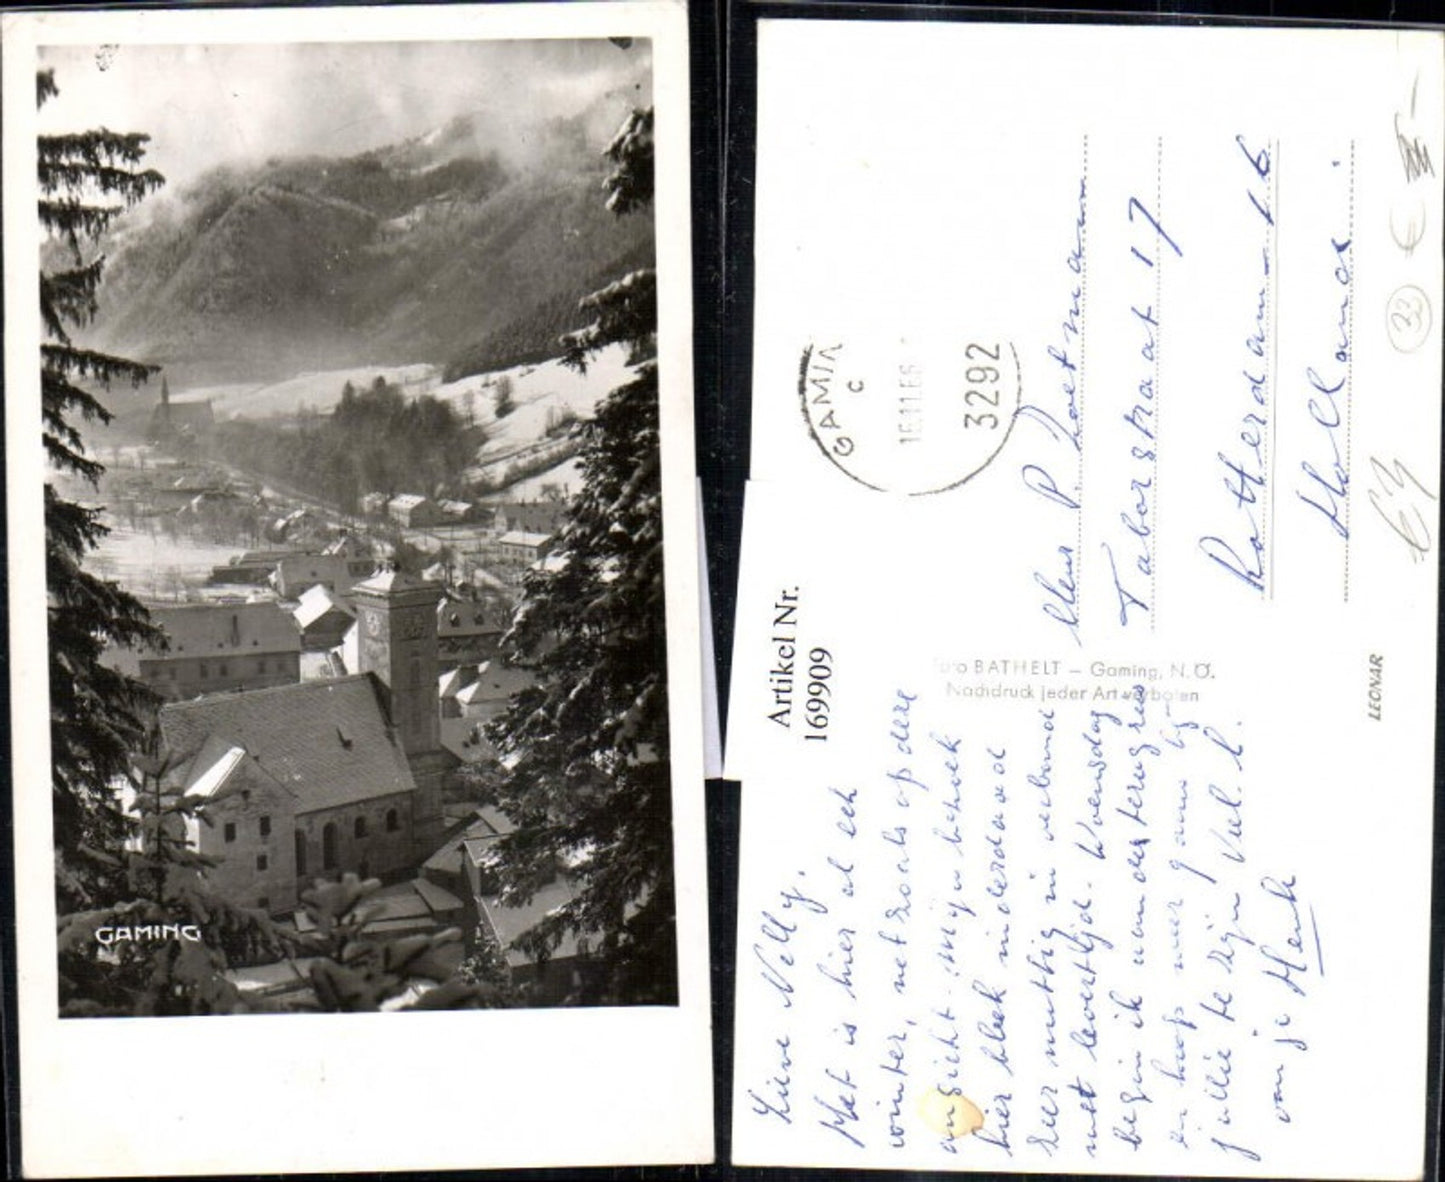 GAMING
Artikel Nr.
169909
GAMING
c
16.11.66
3292
Mevr P. Poetman
Taborstraat 17
Rotterdam-16
Holland.
Foto BATHELT – Gaming, N.Ö.
Nachdruck jeder Art verboten
LEONAR
33
€
Lieve Nelly.
Het is hier al echt
winter, net zoals op deze
ansicht. Mijn bezoek
hier bleek inderdaad
zeer nuttig in verband
met levertijd. Woensdag
begin ik aan de terugreis
en hoop weer gauw bij
jullie te zijn Veel l.
van je Henk